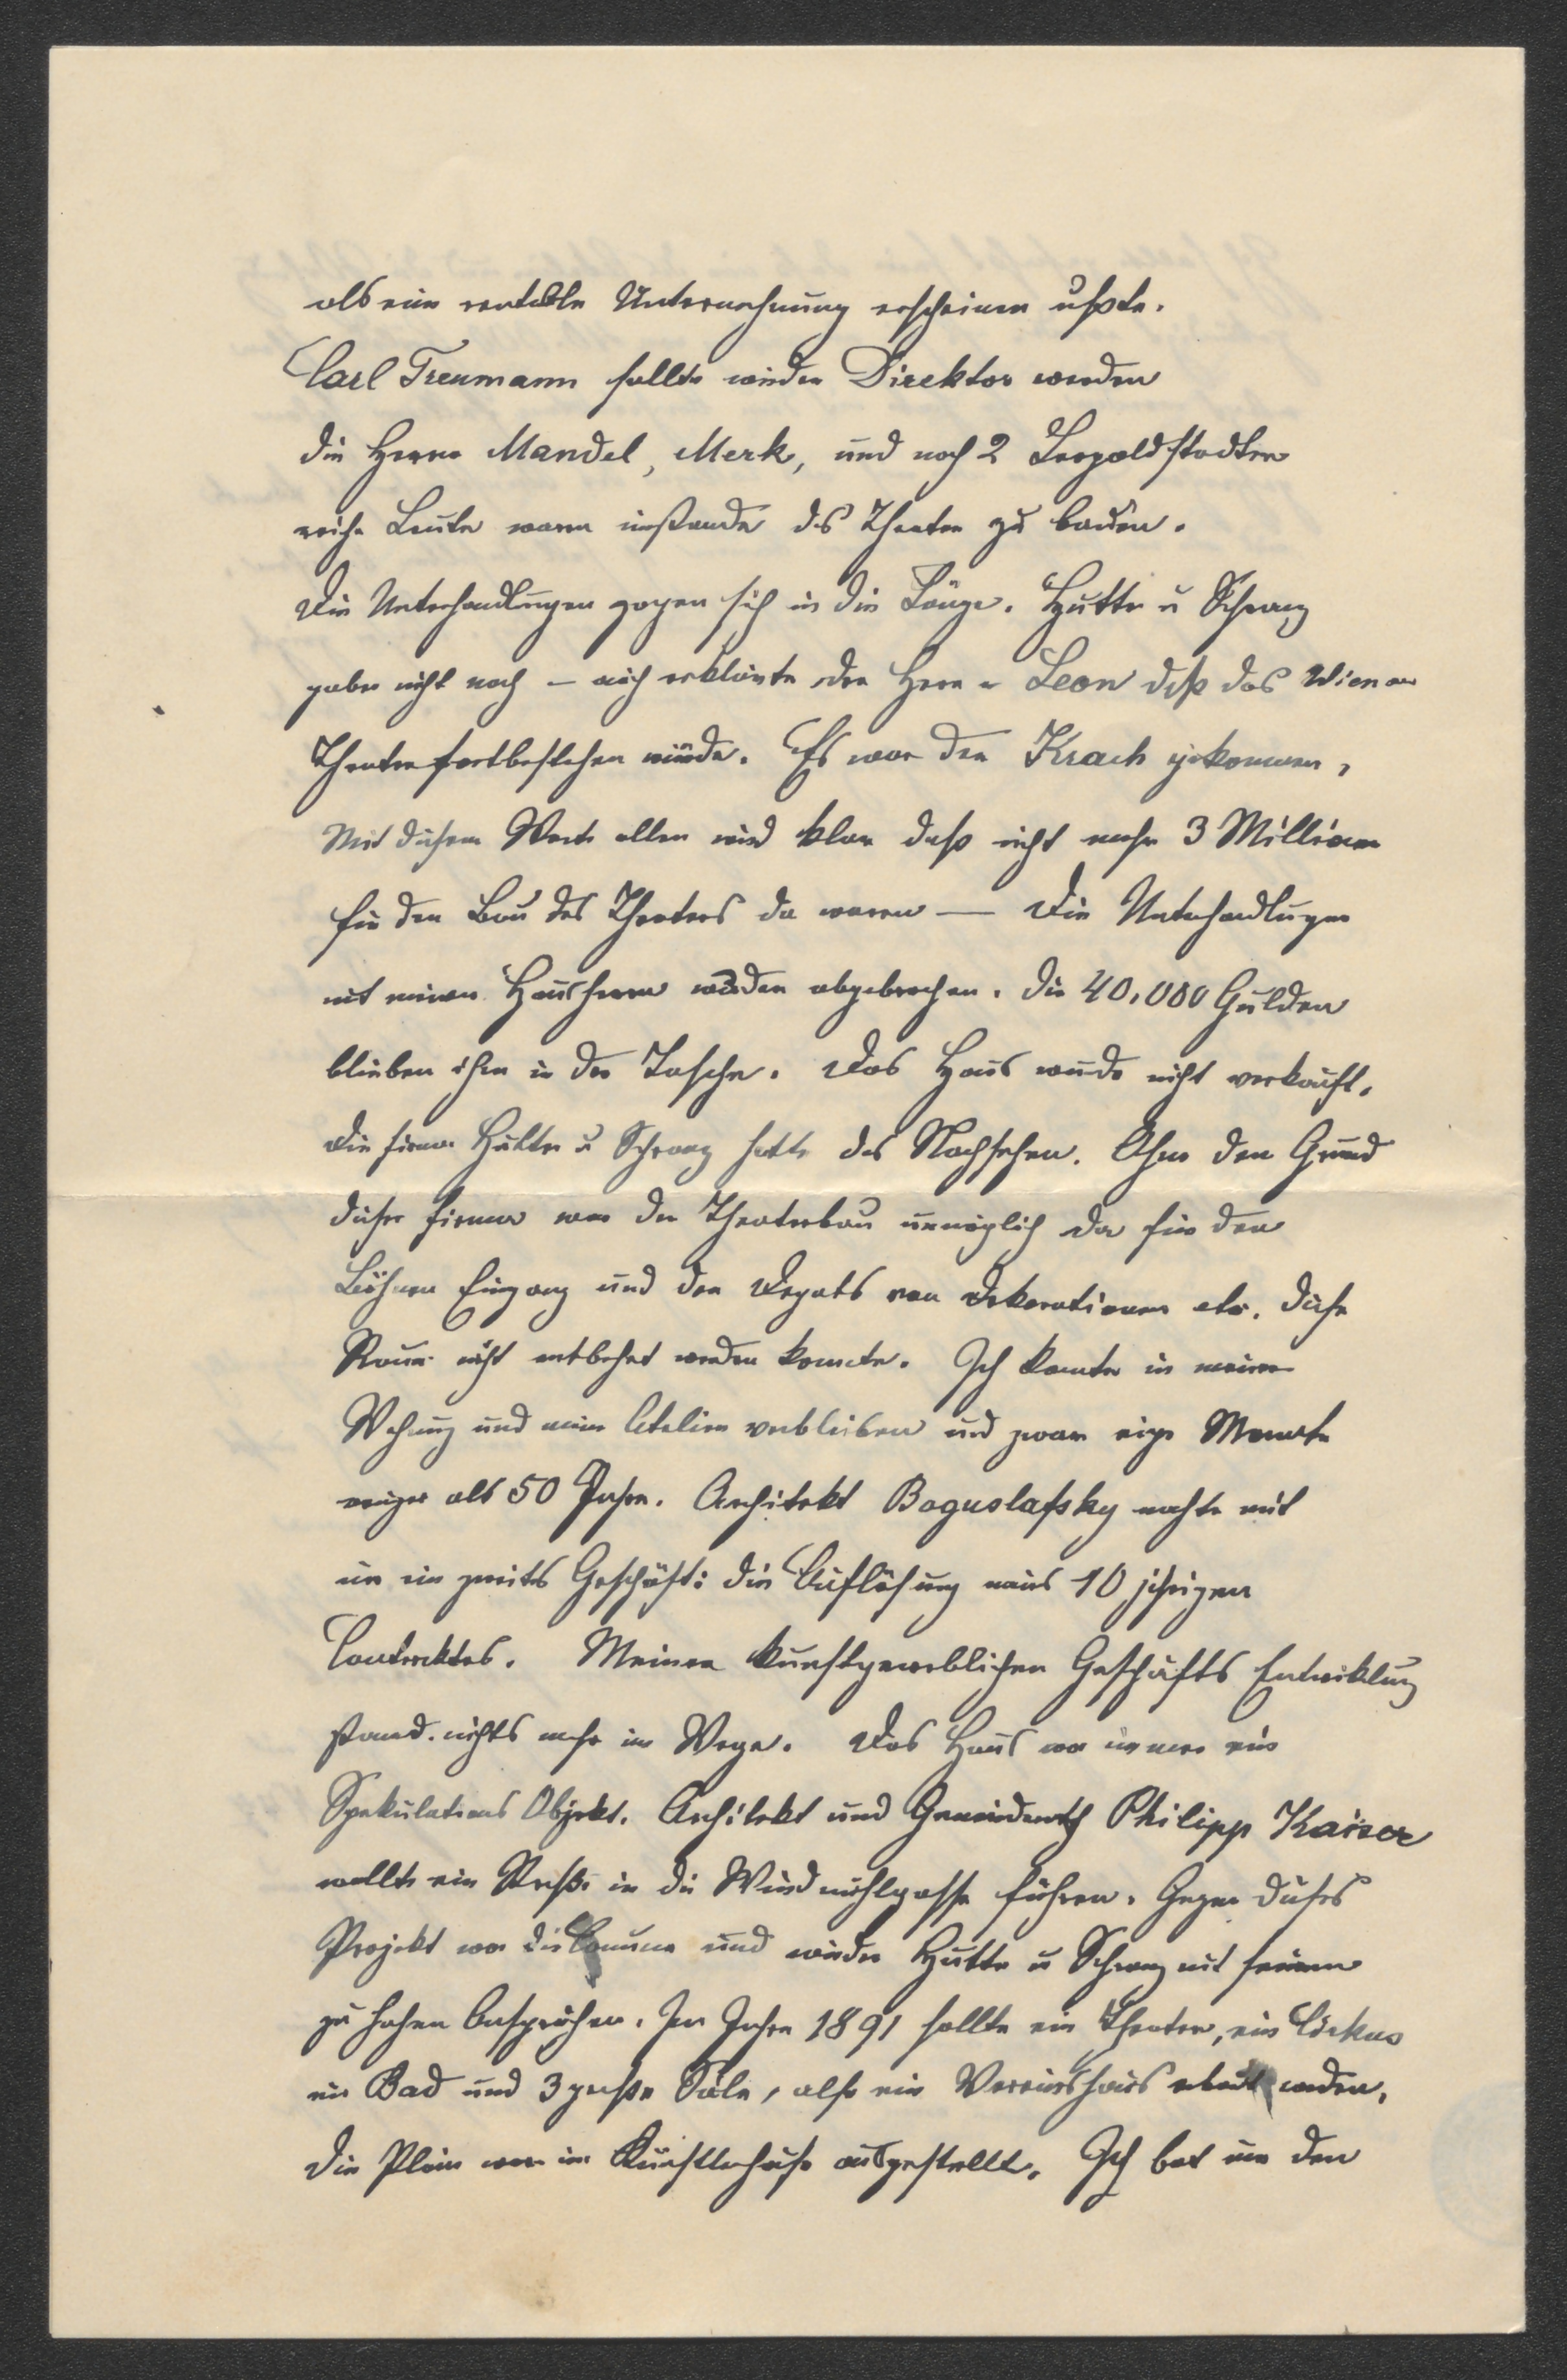 als eine rentable Unternehmung erscheinen ußte.
Carl Treumann sollte wieder Direktor werden
die Herren Mandel, Merk, und noch 2 Leopoldstadter
reiche Leute waren imstande das Theater zu bauen.
Die Unterhandlungen zogen sich in die Länge. Hutter u Schranz
gaben nicht nach – auch erklärte der Herr Leon daß das Wiener
Theater fortbestehen würde. Es war der Krach gekommen,
Mit diesem Worte allen wird klar daß nicht mehr 3 Millionen
für den Bau des Theaters da waren — Die Unterhandlungen
mit meinem Hausherrn wurden abgebrochen. Die 40.000 Gulden
blieben ihm in der Tasche. Das Haus wurde nicht verkauft.
Die Firma Hutter u Schranz hatte das Nachsehen. Ohne den Grund
dieser Firma war der Theaterbau unmöglich da für den
Bühnen Eingang und den Depots von Dekorationen etc. dieser
Raum nicht entbehrt werden konnte. Ich konnte in meiner
Wohnung und mein Atelier verbleiben und zwar einige Monate
weniger als 50 Jahre. Architekt Boguslafsky machte mit
mir ein zweites Geschäft: die Auflösung meines 10 jährigen
Contracktes. Meiner kunstgewerblichen Geschäfts Entwicklung
stand nichts mehr im Wege. Das Haus war immer ein
Spekulations Objekt. Architekt und Gemeinderath Philipp Kaiser
wollte eine Straße in die Windmühlgasse führen. Gegen dieses
Projekt war die Comune und wieder Hutter u Schranz mit seinen
zu hohen Ansprüchen. Im Jahre 1891 sollte ein Theater, ein Cirkus
ein Bad und 3 große Säle, also ein Vereinshaus erbaut werden.
Die Pläne waren im Künstlerhause ausgestellt. Ich bat um den